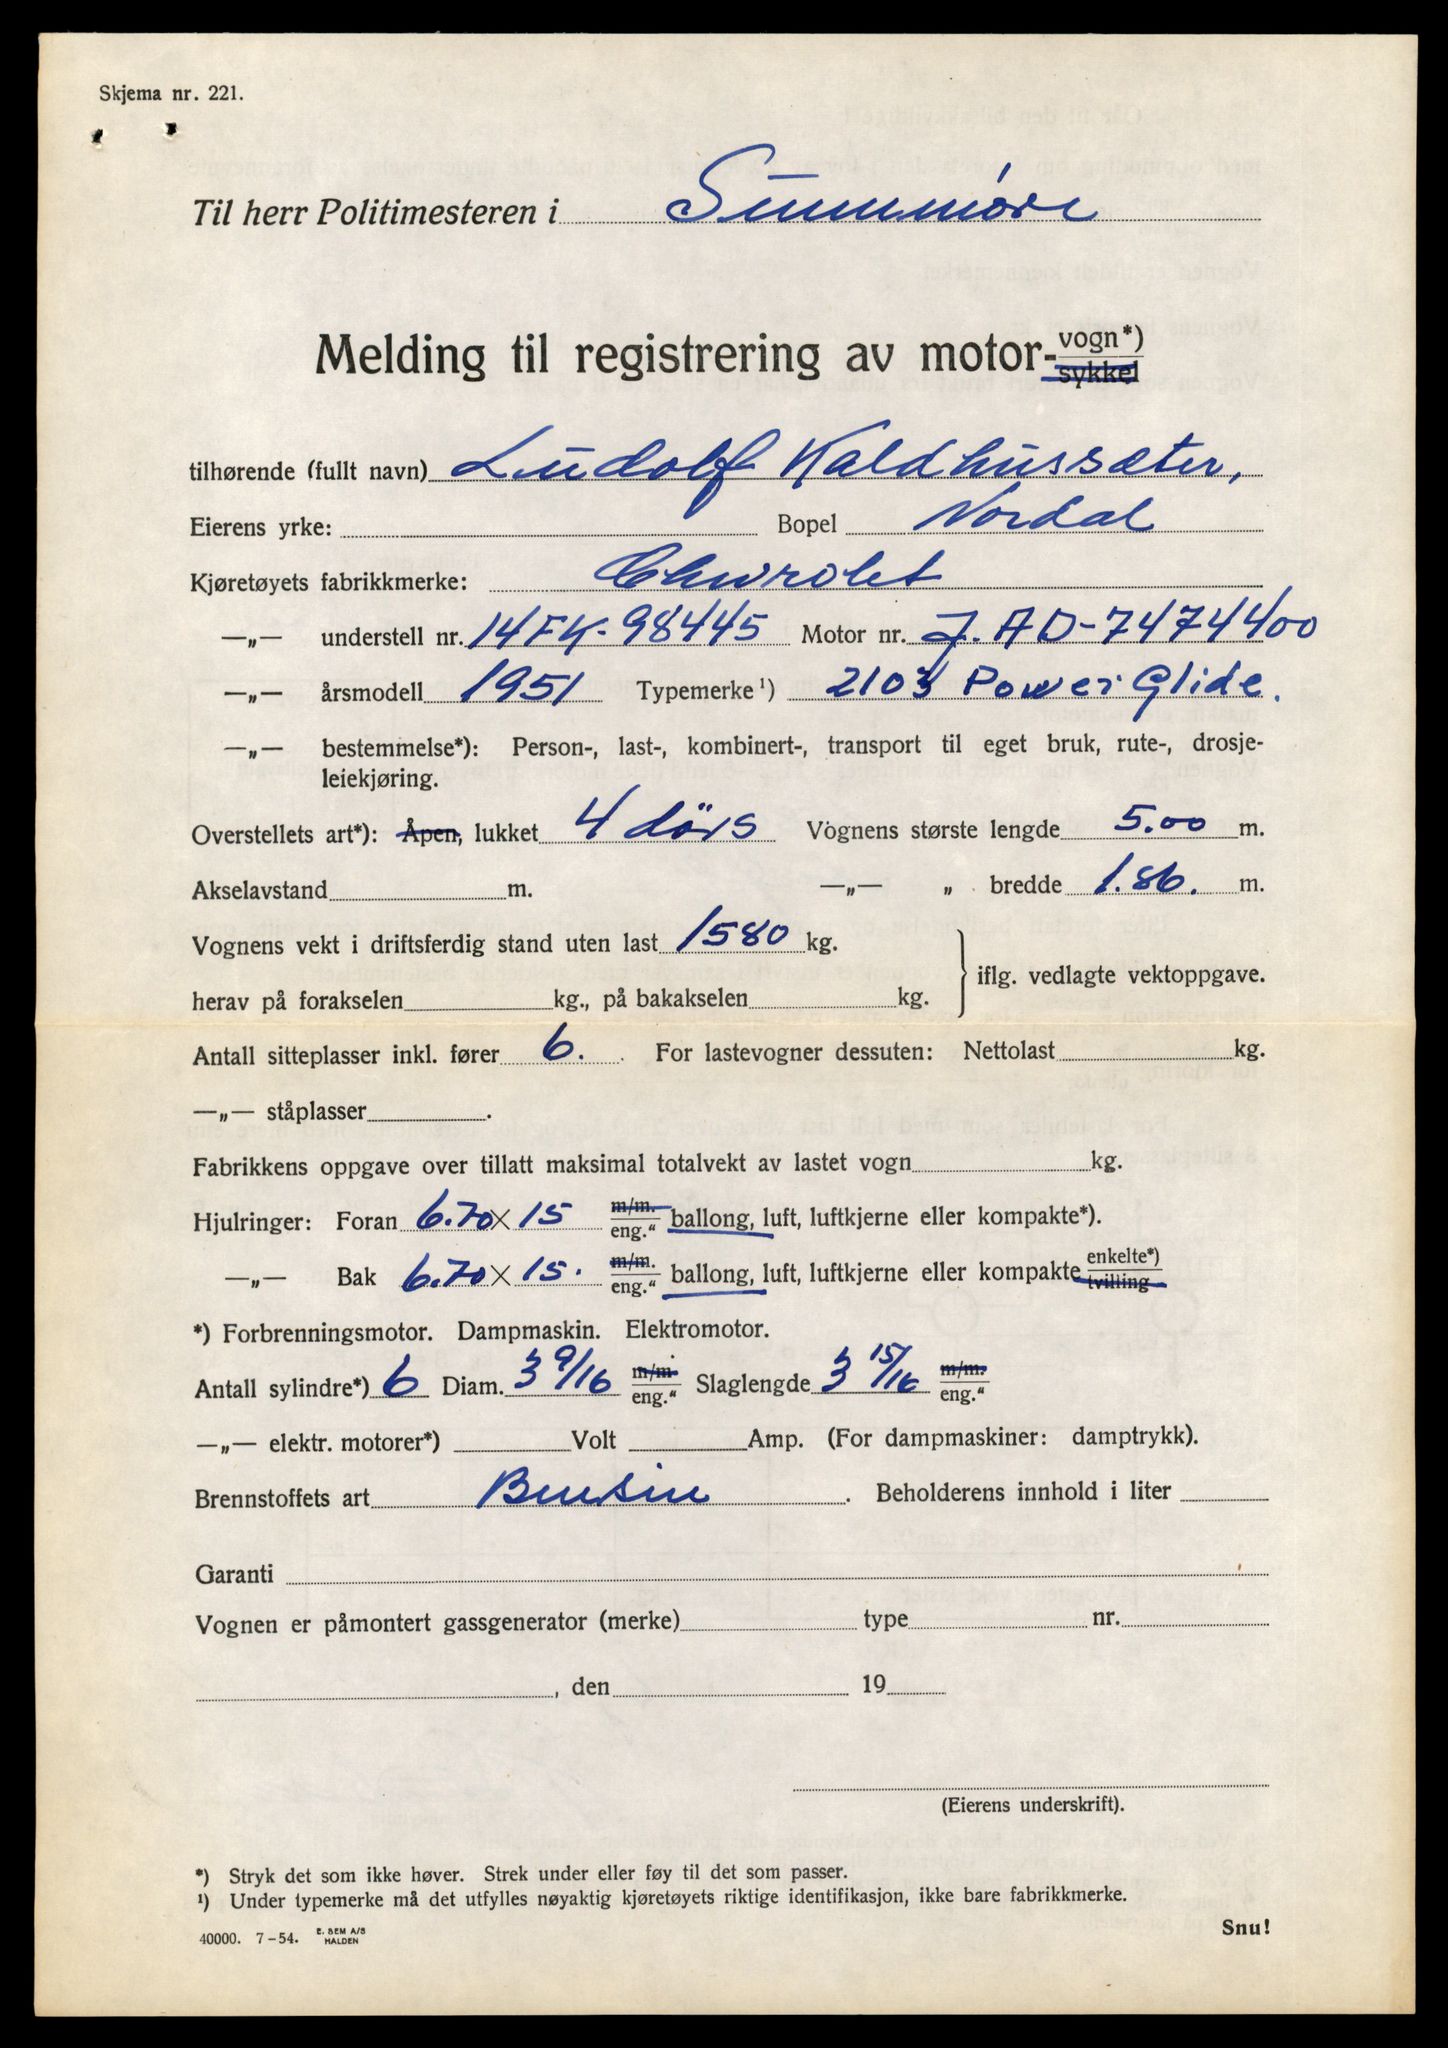 Skjema nr. 221.
Til herr Politimesteren i Sunnmøre
Melding til registrering av motor-vogn*)
sykkel
tilhørende (fullt navn) Ludolf Kaldhussæter,
Eierens yrke: Bopel Nordal
Kjøretøyets fabrikkmerke: Chevrolet
—„— understell nr. 14FK-98445 Motor nr. J.AD-7474400
—„— årsmodell 1951 Typemerke¹) 2103 Power Glide.
—„— bestemmelse*): Person-, last-, kombinert-, transport til eget bruk, rute-, drosje-
leiekjøring.
Overstellets art*): Åpen, lukket 4 dørs Vognens største lengde 5.00 m.
Akselavstand m. —„— „ bredde 1.86. m.
Vognens vekt i driftsferdig stand uten last 1580 kg.
iflg. vedlagte vektoppgave.
herav på forakselen kg., på bakakselen kg.
Antall sitteplasser inkl. fører 6. For lastevogner dessuten: Nettolast kg.
—„— ståplasser .
Fabrikkens oppgave over tillatt maksimal totalvekt av lastet vogn kg.
Hjulringer: Foran 6.70 × 15 m/m. eng.“ ballong, luft, luftkjerne eller kompakte*).
—„— Bak 6.70 × 15. m/m. eng.“ ballong, luft, luftkjerne eller kompakte enkelte*) tvilling
*) Forbrenningsmotor. Dampmaskin. Elektromotor.
Antall sylindre*) 6 Diam. 3 9/16 m/m. eng.“ Slaglengde 3 15/16 m/m. eng.“
—„— elektr. motorer*) Volt Amp. (For dampmaskiner: damptrykk).
Brennstoffets art Bensin . Beholderens innhold i liter
Garanti
Vognen er påmontert gassgenerator (merke) type nr.
, den 19
(Eierens underskrift).
*) Stryk det som ikke høver. Strek under eller føy til det som passer.
¹) Under typemerke må det utfylles nøyaktig kjøretøyets riktige identifikasjon, ikke bare fabrikkmerke.
Snu!
40000. 7-54. E. SEM A/S
HALDEN